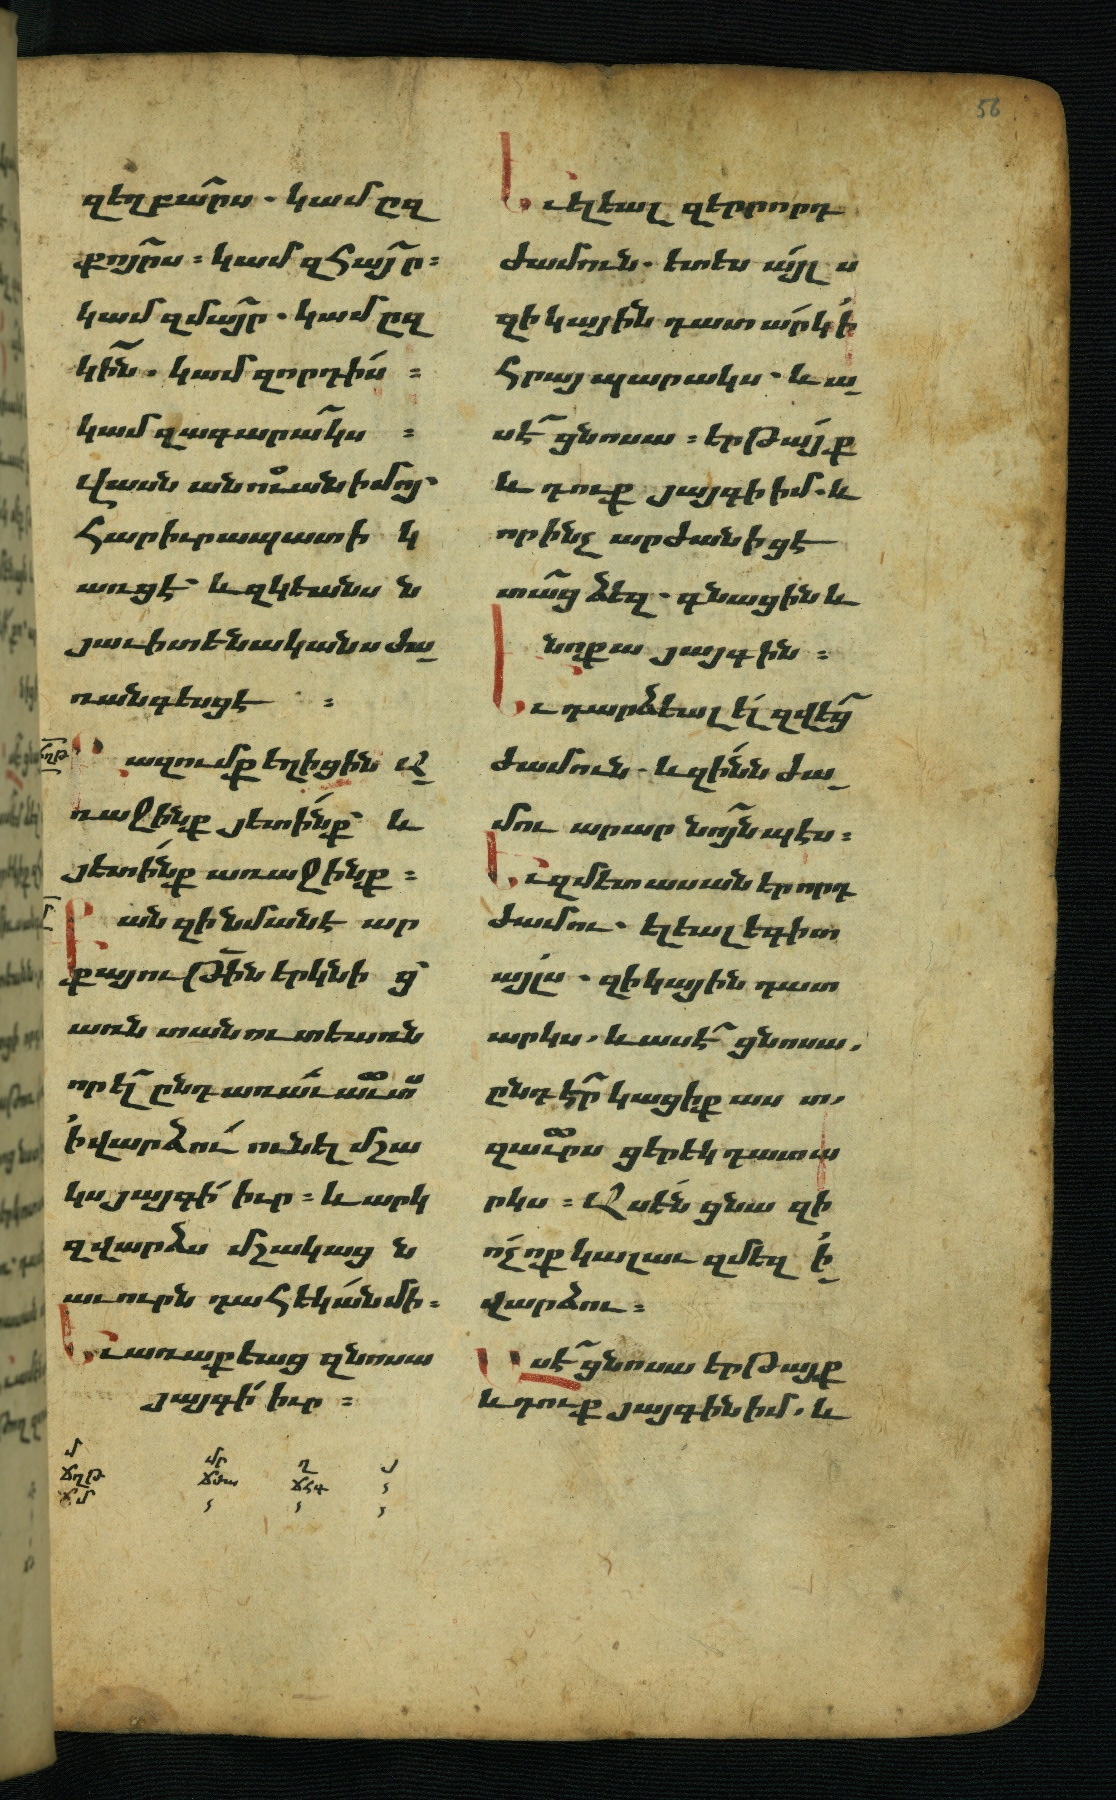 56
զեղբա՜րս. կամ ըզ
քոյ՜րս։ կամ զհայ՜ր։
կամ զմայ՜ր. կամ ըզ
կի՜ն. կամ զորդի՛ս ։
կամ զագարա՜կս ։
վասն անուան իմոյ՝
հարիւրապատի կ
առցէ՝ և զկեանս ն
յաւիտենականս ժա
ռանգեսցէ ։
ճղթ
ազումք եղիցին Ա
ռաջինք յետի՛նք՝ և
յետի՛նք առաջինք։
մ
Քան զի նման է ար
քայութի՜ն երկնի ց՝
առն տանուտեառն
որ ել՜ ընդ առաւ՛աւտն
ի՛ վարձու՛ ունել մշա
կս յայգի՛ իւր։ և արկ
զվարձս մշակաց ն
աւուրն դահեկա՛ն մի։
Եւ առաքեաց զնոսա
յայգի՛ իւր ։
Եւ ելեալ զերրորդ
ժամուն. ետես ա՛յլ ս
զի կային դատա՛րկ ի՛
հրապարակս. և ա
սէ՜ ցնոսա։ երթա՛յք
և դուք յայգի իմ. և
որ ինչ արժան իցէ
տա՜ց ձեզ. գնացին և
նոքա յայգին ։
Եւ դարձեալ ե՛լ զվե՜ց
ժամուն. և զի՛նն ժա
մու արար նո՜յնպէս։
Եւ զմետասաներորդ
ժամու. ելեալ եգիտ
այլս. զի կային դատ
արկս, և ասէ՜ ցնոսա,
ընդէ՜ր կացեք աս տ,
զաւրս ցերեկ դատա
րկս։ Ասե՛ն ցնա զի
ո՛չ ոք կալաւ զմեզ ի՛
վարձու։
Ասէ՜ ցնոսա երթայք
և դուք յայգին իմ, և
մ
ճղթ
ճմ
մր
ճժա
ղ
ճհգ